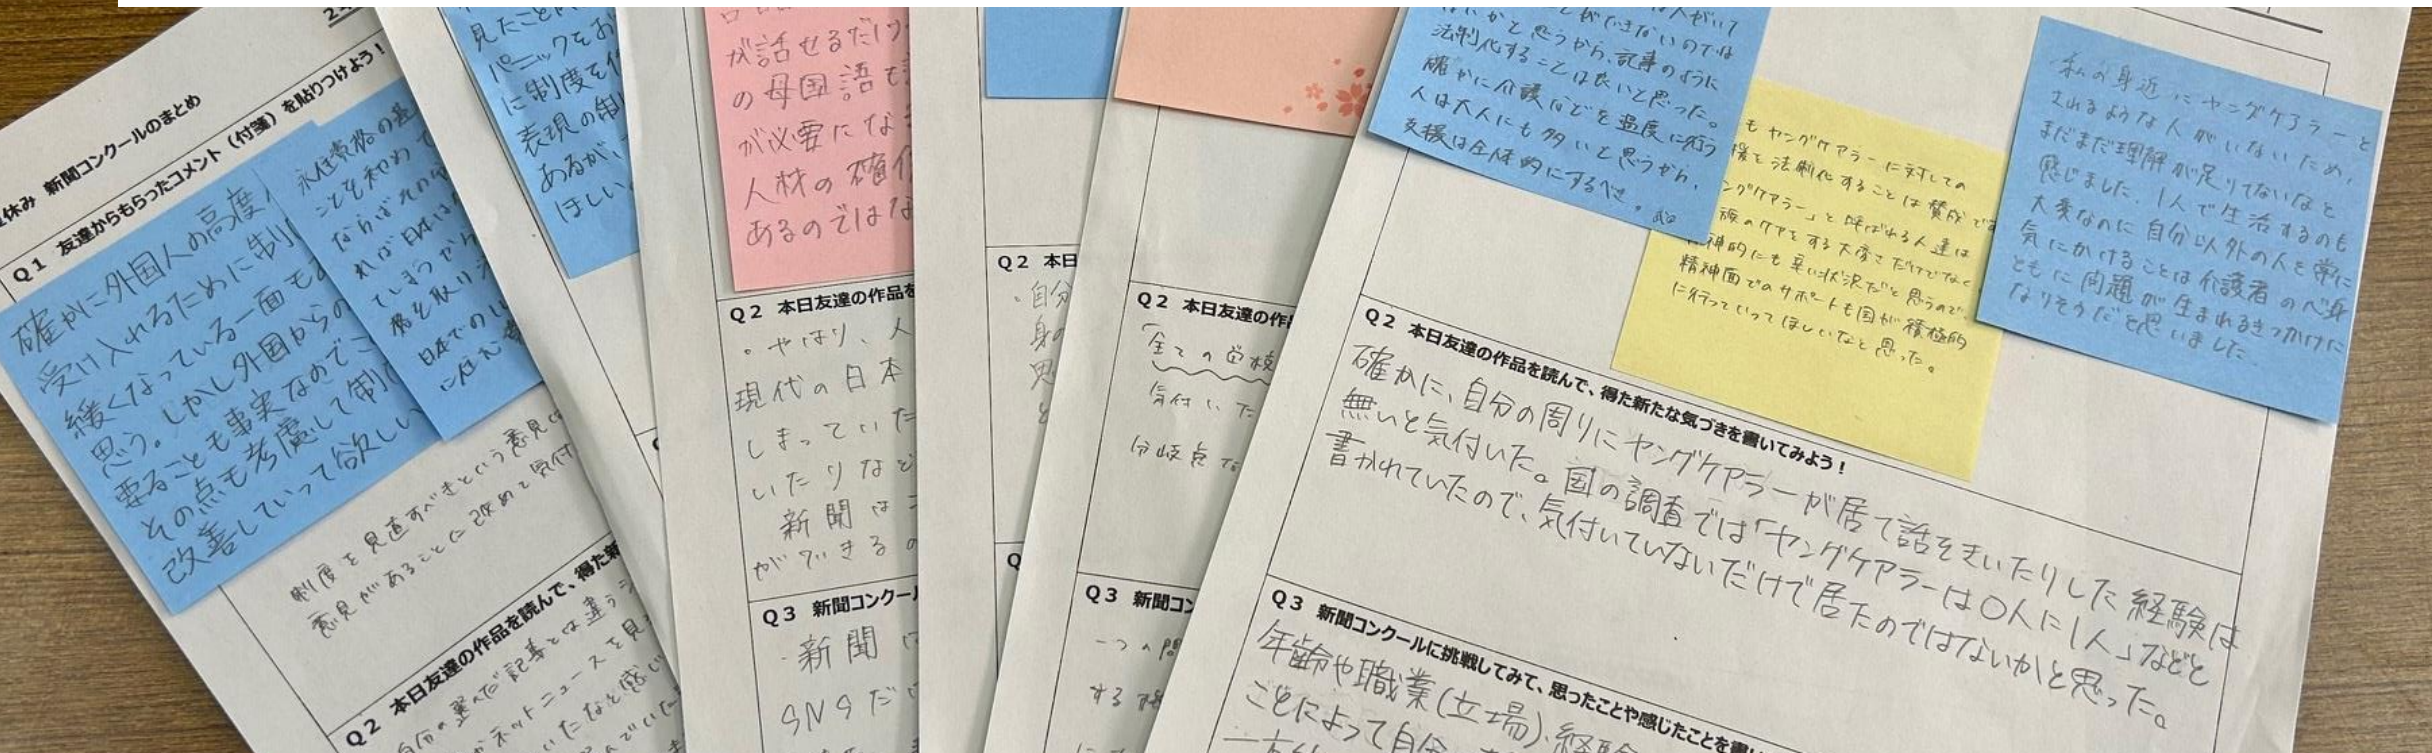 休み 新聞コンクールのまとめ
Q1 友達からもらったコメント（付箋）を貼りつけよう！
確かに外国人の高度
受け入れるために制
緩くなっている一面も
思う。しかし外国からの
要ることも事実なのでこ
その点も考慮して制
改善していって欲しい
永住資格の基
ことを初めて
ならば
れば日本は
てしまうから
日本での
制度を見直すべきという意見は
意見があることに改めて気付
Q2 本日友達の作品を読んで、得た新
自分の選んだ記事とは違う
ネットニュースを見
いたなと感じ
見たこと
パニックをお
に制度を作
表現の制
あるが、
ほしい。
が話せるだけ
の母国語も
が必要にな
人材の確保
あるのではな
Q2 本日友達の作品を
・やはり、人
現代の日本
しまっていた
いたりなど
新聞は
ができるの
Q3 新聞コンクー
・新聞は
SNSだけ
Q2 本日
・自分
身の
思
と
Q
Q2 本日友達の作
「全ての学校
気付いた
分岐点
Q3 新聞コン
一つの問
する
人がいて
ことができないのでは
ないかと思うから、記事のように
法制化することは良いと思った。
確かに介護などを過度に行う
人は大人にも多いと思うから、
支援は全体的にするべき。
もヤングケアラーに対しての
援を法制化することは賛成です
ングケアラー」と呼ばれる人達は
族のケアをする大変さだけでなく
神的にも辛い状況だと思うので、
精神面でのサポートも国が積極的
に行っていってほしいなと思った。
私の身近にヤングケアラーと
されるような人がいないため、
まだまだ理解が足りてないなと
感じました。1人で生活するのも
大変なのに自分以外の人を常に
気にかけることは介護者の心身
ともに問題が生まれるきっかけに
なりそうだと思いました。
Q2 本日友達の作品を読んで、得た新たな気づきを書いてみよう！
確かに、自分の周りにヤングケアラーが居て話をきいたりした経験は
無いと気付いた。国の調査では「ヤングケアラーは〇人に1人」などと
書かれていたので、気付いていないだけで居たのではないかと思った。
Q3 新聞コンクールに挑戦してみて、思ったことや感じたことを書い
年齢や職業(立場)、経験
ごとによって自分